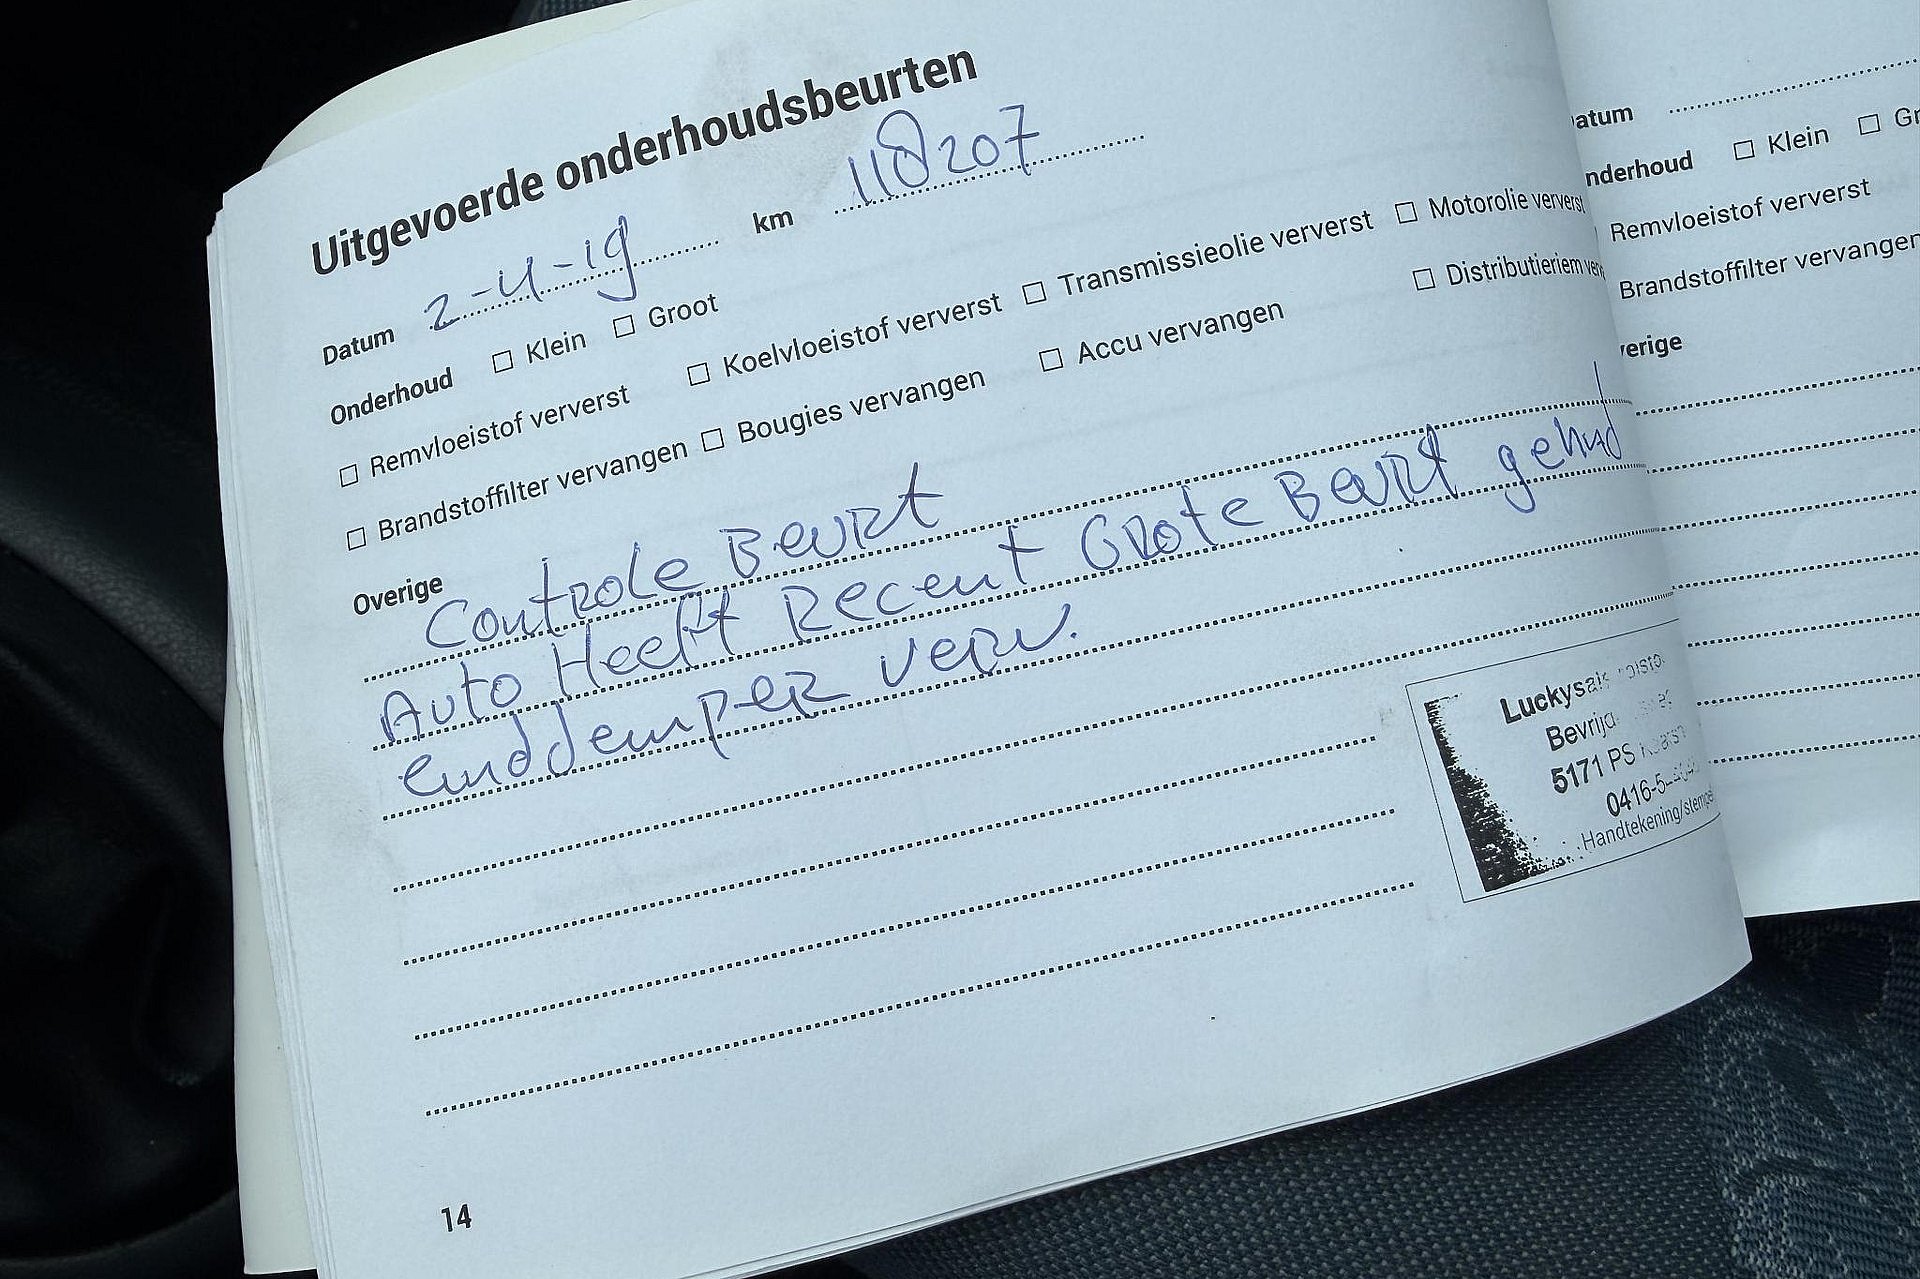 Uitgevoerde onderhoudsbeurten
Datum 2-4-19 km 118207
Onderhoud □ Klein □ Groot
□ Remvloeistof ververst □ Koelvloeistof ververst □ Transmissieolie ververst □ Motorolie ververst
□ Brandstoffilter vervangen □ Bougies vervangen □ Accu vervangen □ Distributieriem
Overige
Controle Beurt
Auto Heeft Recent Grote Beurt gehad
einddemper verv.
Bevrijd
5171 PS
0416-5
Handtekening/stempel
14
atum
nderhoud □ Klein □ Gr
Remvloeistof ververst
Brandstoffilter vervangen
erige